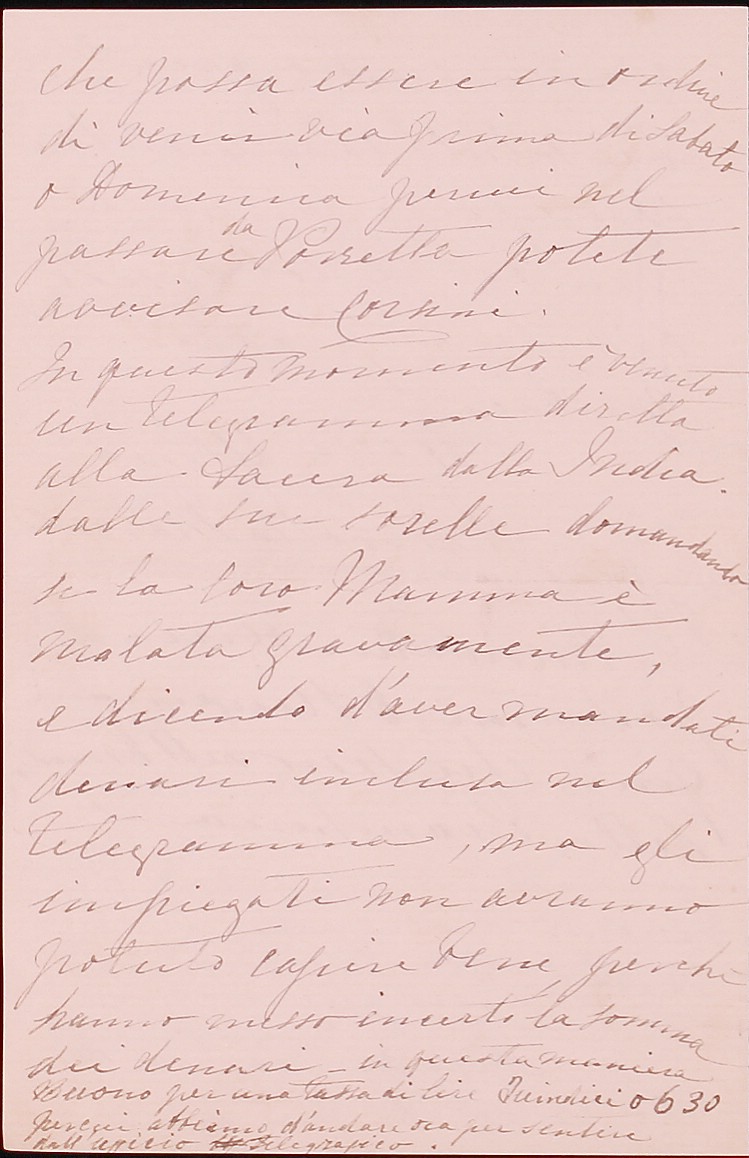 che possa essere in ordine
di venir via prima di Sabato
o Domenica percui nel
passare da Porretta potete
avvisare Corsini.
In questo momento è venuto
un telegramma diretta
alla Laura dalla India.
dalle sue sorelle domandando
se la loro Mamma è
malata gravamente,
e dicendo d'aver mandati
denari inclusa nel
telegramma, ma gli
impiegati non avranno
potuto capire bene perchè
hanno messo incerto la somma
dei denari - in questa maniera
Buono per una tassa di lire Quindici o 6 30
percui abbiamo d'andare ora per sentire
dall' ufficio telegrafico.